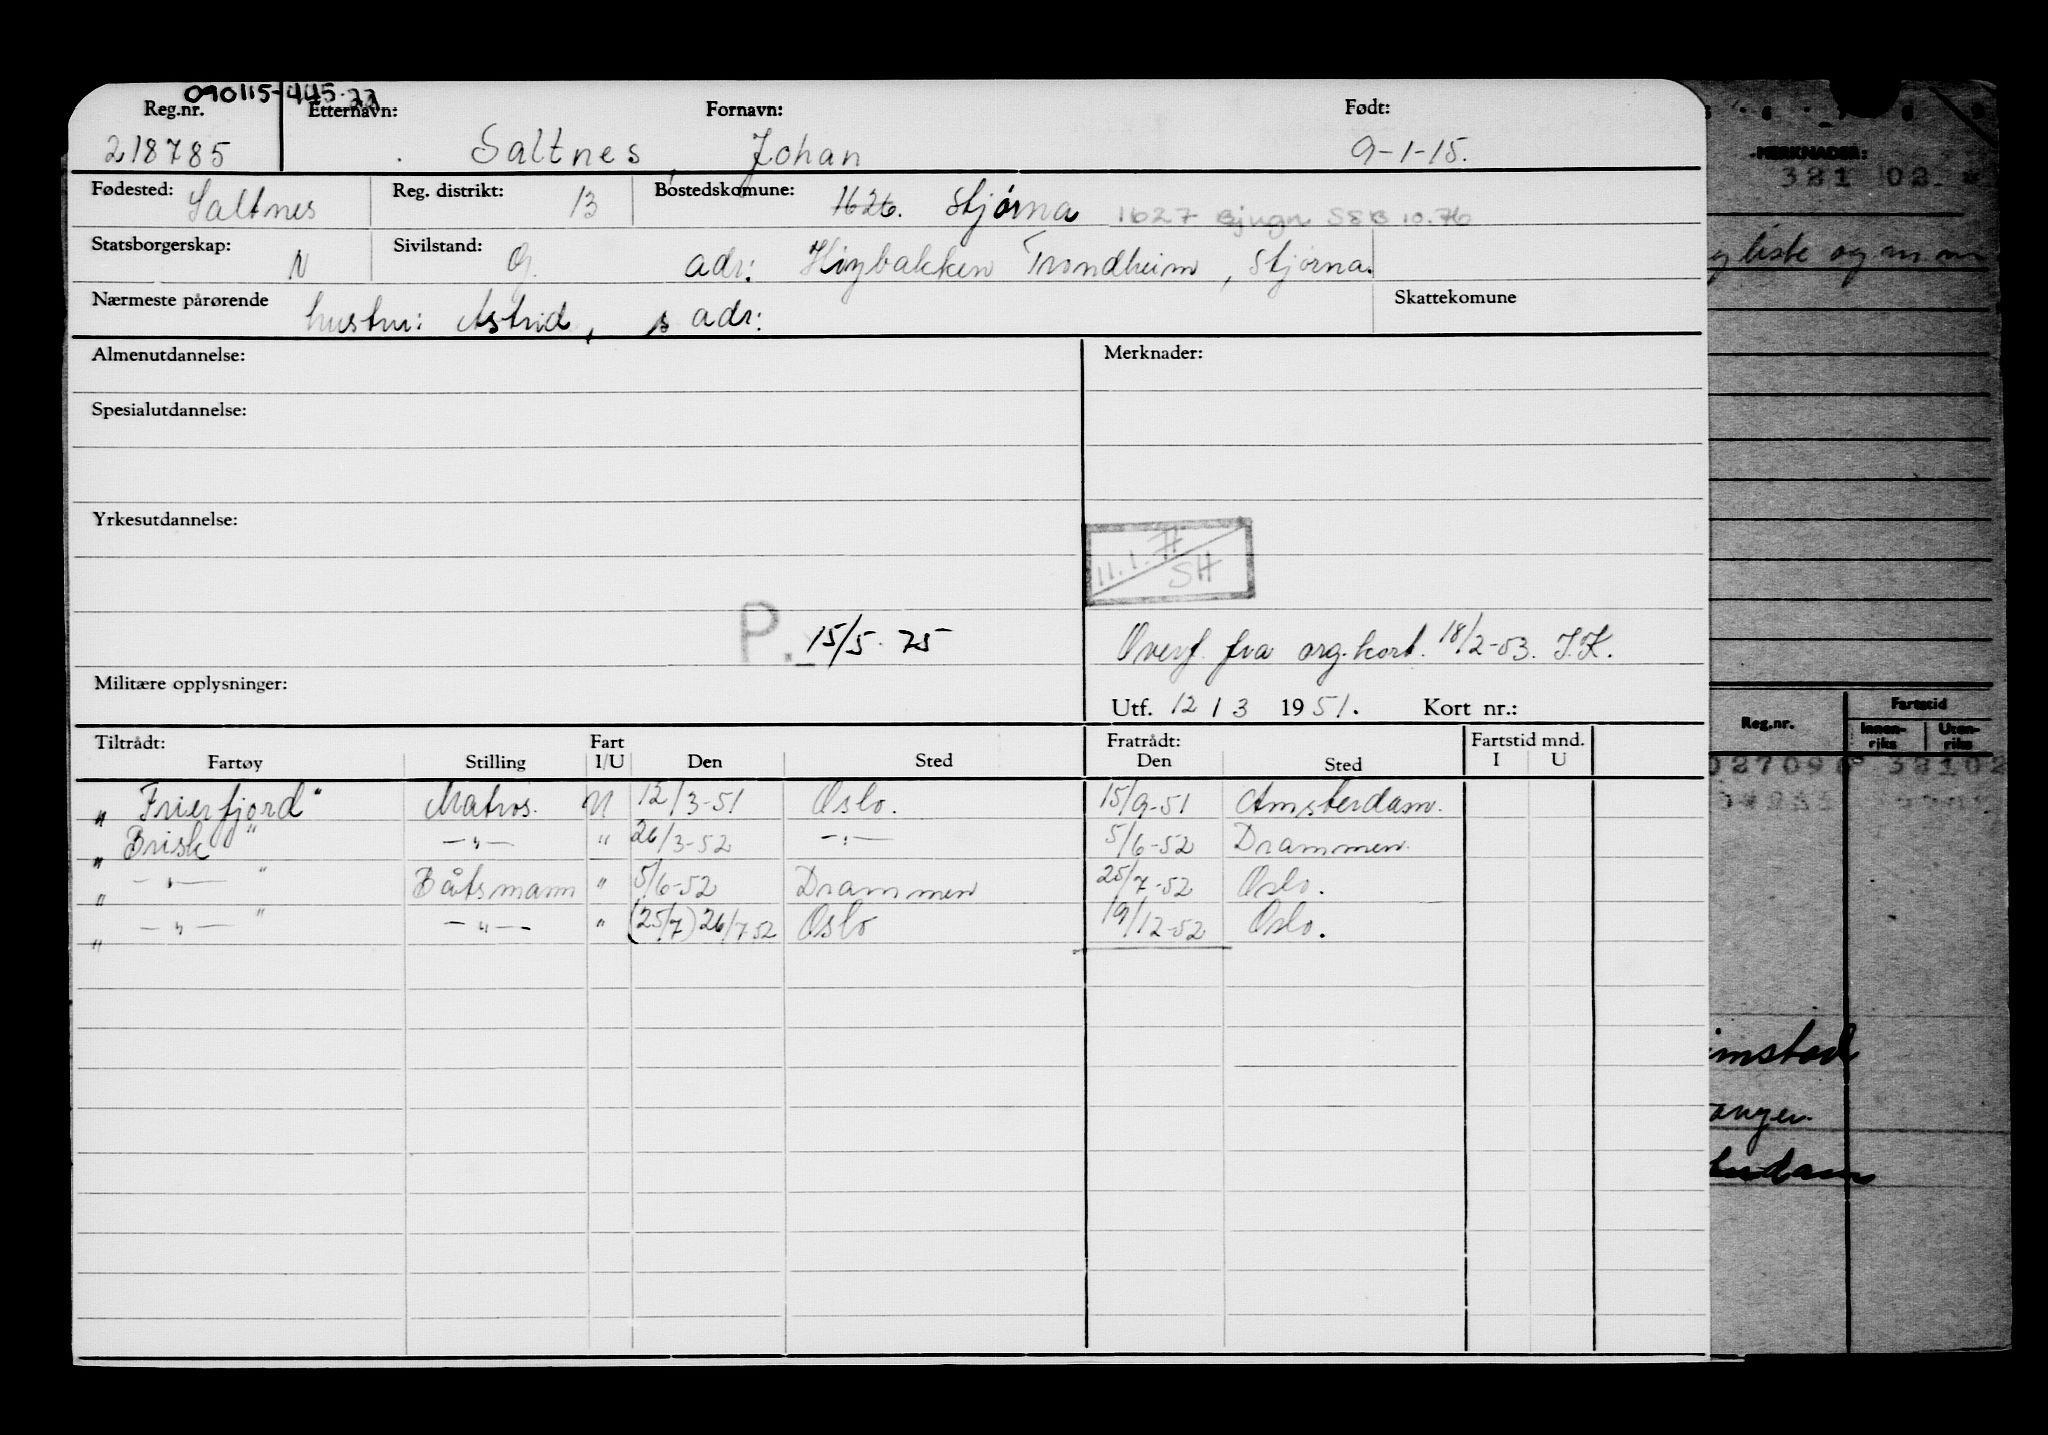 090115-445-22
Reg.nr. Etternavn: Fornavn: Født:
218785 Saltnes Johan 9-1-15.
Fødested: Saltnes Reg. distrikt: 13 Bostedskomune: 1626. Stjørna 1627 Bjugn SSB 10.76
Statsborgerskap: N Sivilstand: G. adr: Høybakken Trondheim, Stjørna.
Nærmeste pårørende hustru: Astrid, s adr: Skattekomune
Almenutdannelse: Merknader:
Spesialutdannelse:
Yrkesutdannelse:
11.1.71
SH
P. 15/5-75 Overf. fra org.kort. 18/2-53. I.K.
Militære opplysninger: Utf. 12 / 3 1951. Kort nr.:
Tiltrådt: Fart Fratrådt: Fartstid mnd.
Fartøy Stilling I/U Den Sted Den Sted I U
„Frierfjord" Matros. U 12/3-51 Oslo. 15/9-51 Amsterdam.
„Brisk" —„— " 26/3-52 —„— 5/6-52 Drammen.
„—„—" Båtsmann " 5/6-52 Drammen 25/7-52 Oslo.
„—„—" —„— " (25/7) 26/7 52 Oslo 19/12-52 Oslo.
MERKNADER:
321 02
liste og
Reg.nr. Fartstid
Innen-riks Uten-riks
32102